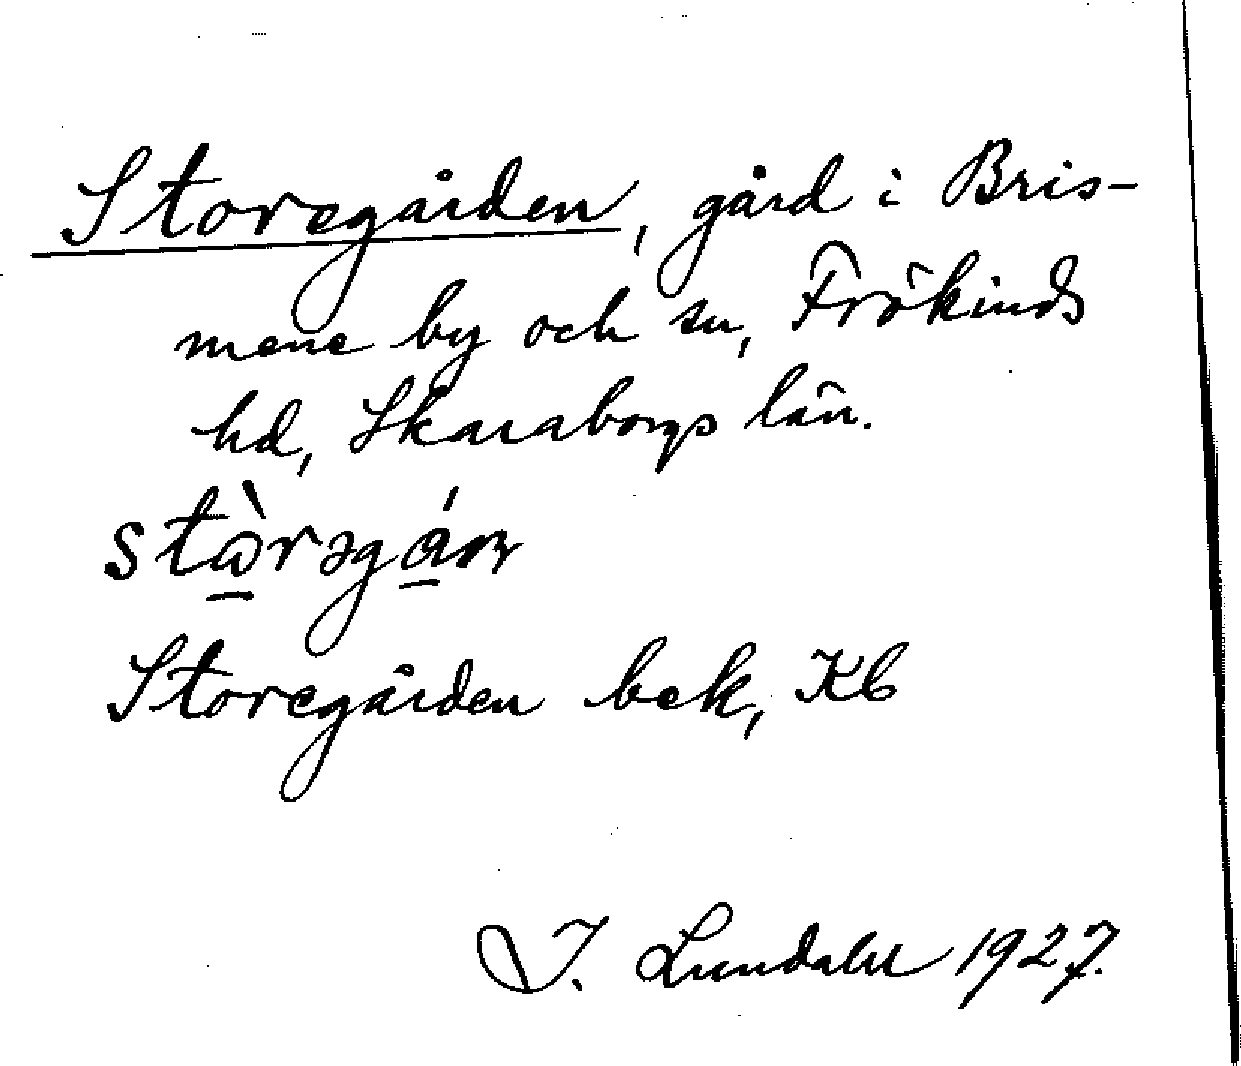 Storegården, gård i Bris-
mene by och sn, Frökinds
hd, Skaraborgs län.
Storegården bek, Kb
I. Lundahl 1927.